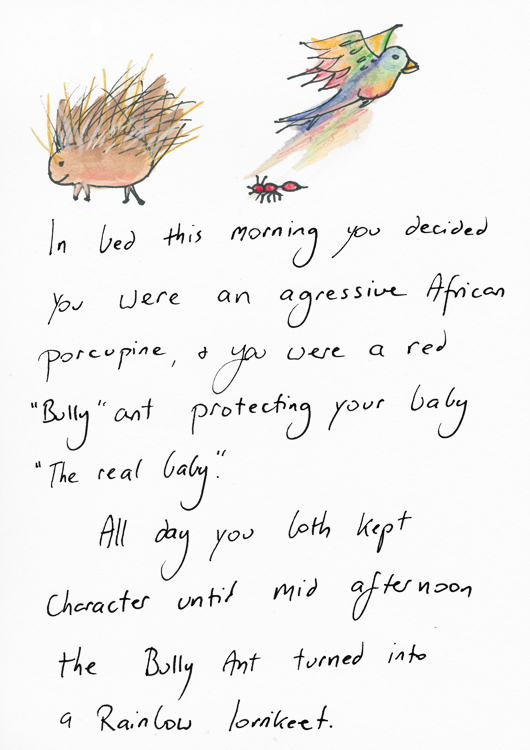 In bed this morning you decided
you were an agressive African
porcupine, & you were a red
"Bully" ant protecting your baby
"The real baby".
All day you both kept
Character until mid afternoon
the Bully Ant turned into
a Rainbow lorrikeet.